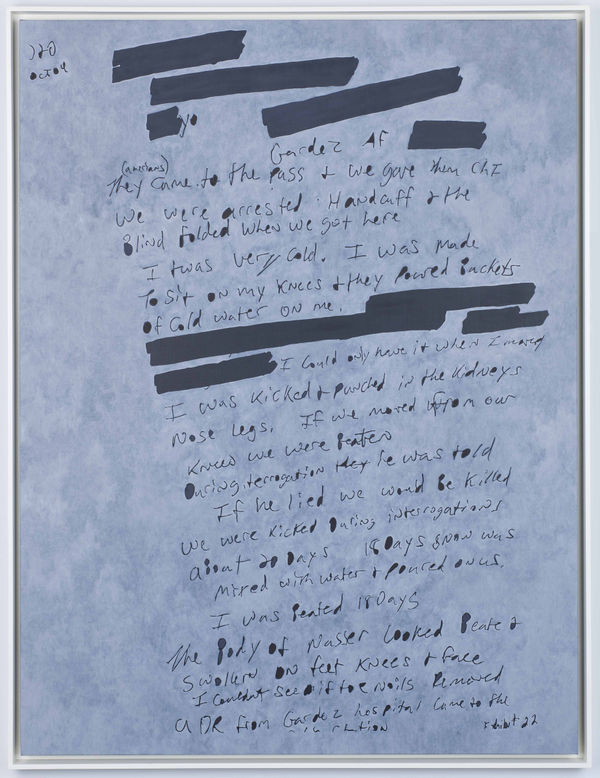 Oct 04
yo
Gardez AF
(americans)
They came to the pass & we gave them chI
We were arrested. Handcuff & the
Blind folded when we got here
I twas very cold. I was made
To sit on my knees & they poured Buckets
of cold water on me.
I could only have it when I moved
I was kicked & punched in the kidneys
Nose legs. If we moved from our
knees we were Beaten
During interrogation they he was told
If he lied we would be killed
We were kicked During interrogations
about 20 Days 18 Days snow was
mixed with water & poured on us.
I was Beated 18 Days
The Body of Nasser Looked Beate &
Swollen on feet knees & face
I Couldnt see if toe nails Removed
a DR from Gardez hospital came to the
Exhibit 22